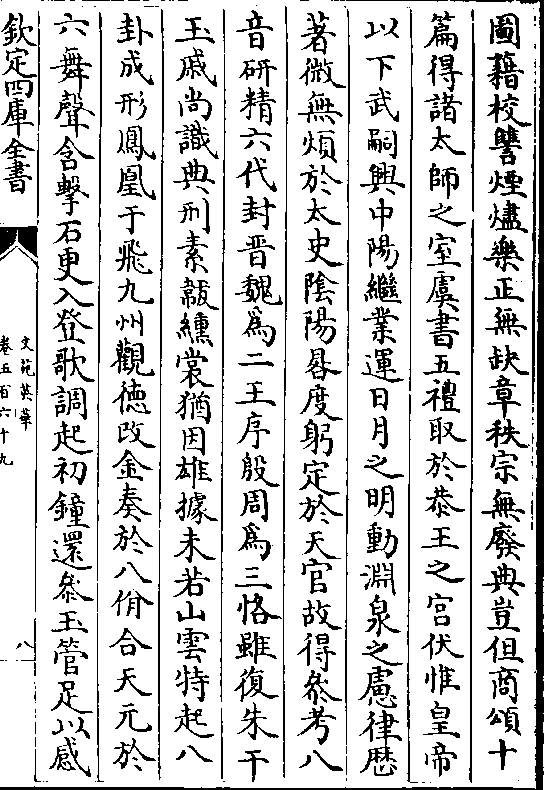 圖籍校讐煙燼樂正無缺章秩宗無廢典豈但商頌十
篇得諸太師之室虞書五禮取於恭王之宮伏惟皇帝
以下武嗣興中陽繼業運日月之明動淵泉之慮律歴
著微無煩於太史陰陽晷度躬定於天官故得叅考八
音研精六代封晋魏爲二王序殷周爲三恪雖復朱干
玉戚尚識典刑素韍纁裳猶因雄據未若山雲特起八
卦成形鳳凰于飛九州觀徳改金奏於八佾合天元於
六舞聲含擊石更入登歌調起初鐘還叅玉管足以感
欽定四庫全書
文苑英華
卷五百六十九
八